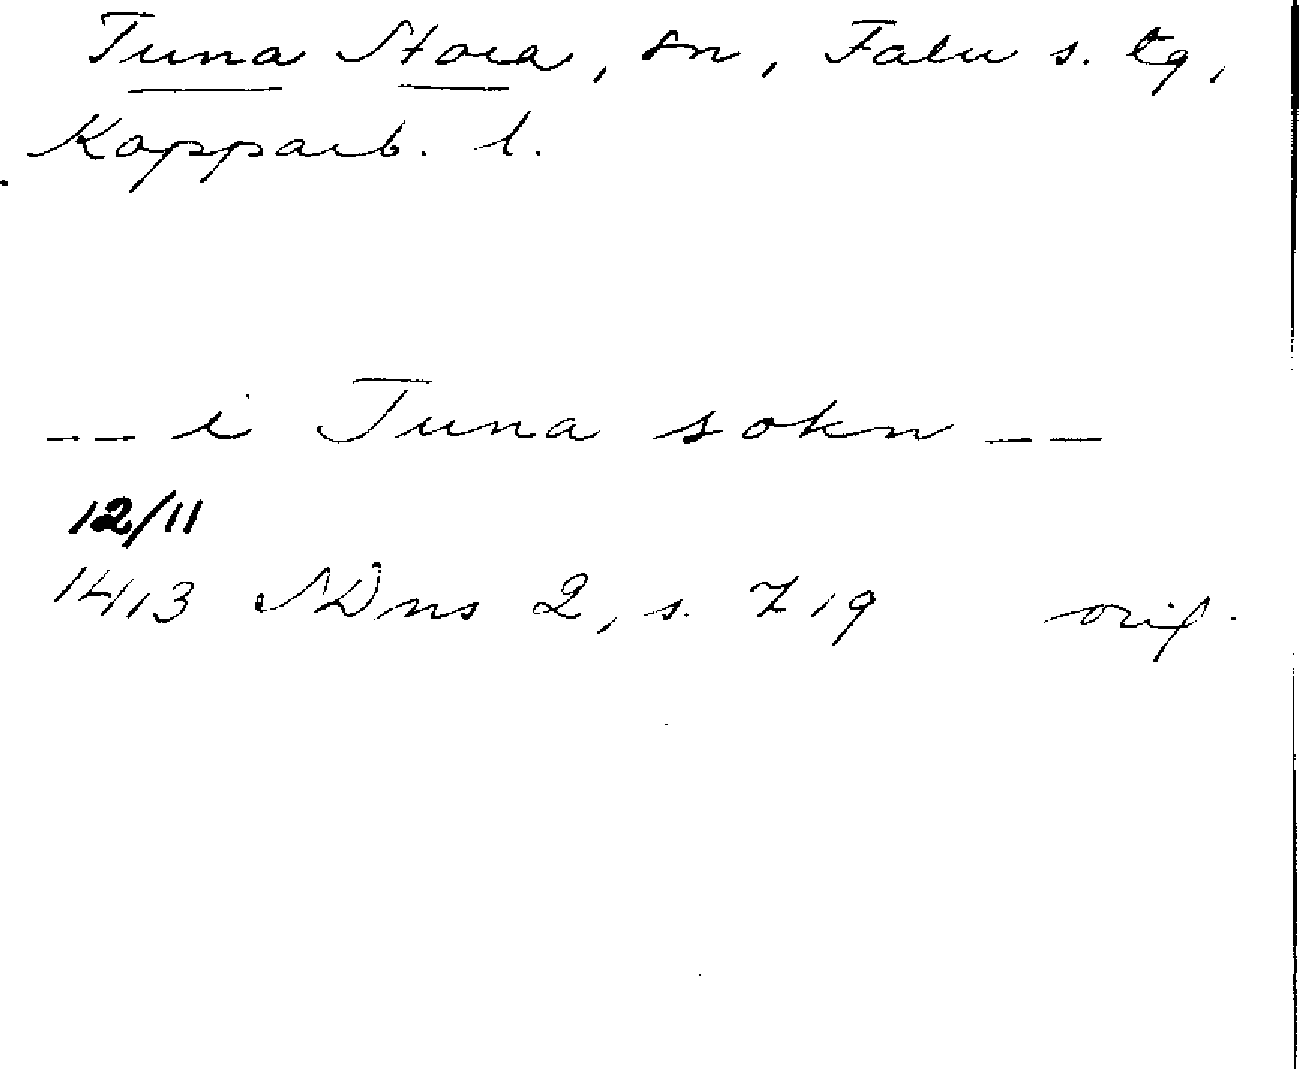 Tuna Stora, sn, Falu s. tg,
Kopparb. l.
-- i Tuna sokn --
12/11
1413 SDns 2, s. 719 orig.